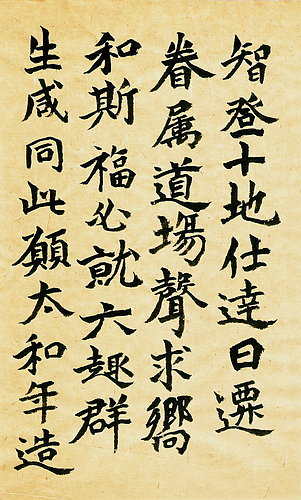 智登十地仕達日遷
眷属道場聲求嚮
和斯福必就六趣群
生咸同此願太和年造